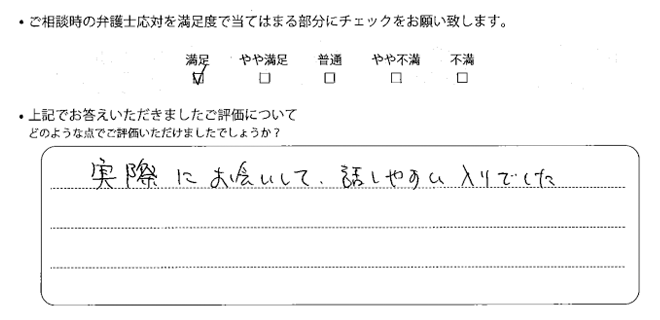 ・ご相談時の弁護士応対を満足度で当てはまる部分にチェックをお願い致します。
満足 やや満足 普通 やや不満 不満
・上記でお答えいただきましたご評価について
どのような点でご評価いただけましたでしょうか？
実際にお会いして、話しやすい入りでした